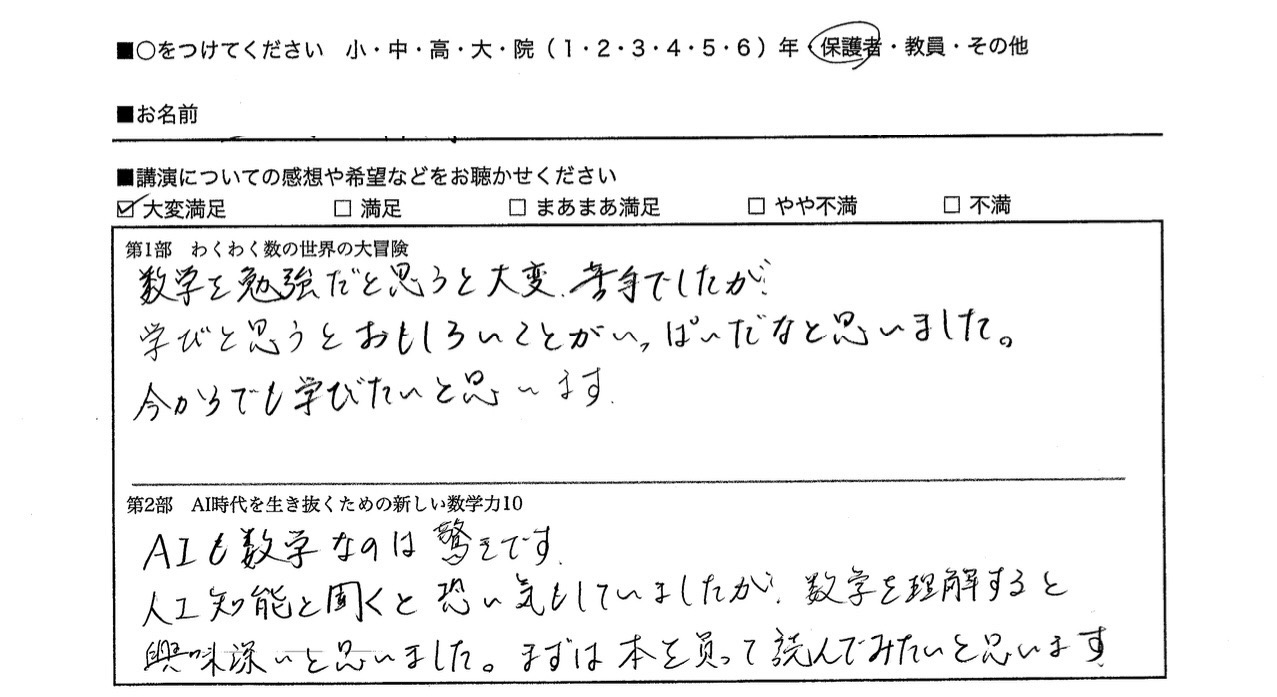 ■○をつけてください 小・中・高・大・院（1・2・3・4・5・6）年・保護者・教員・その他
■お名前
■講演についての感想や希望などをお聴かせください
☑ 大変満足 □ 満足 □ まあまあ満足 □ やや不満 □ 不満
第1部 わくわく数の世界の大冒険
数学を勉強だと思うと大変、苦手でしたが、
学びと思うとおもしろいことがいっぱいだなと思いました。
今からでも学びたいと思います.
第2部 AI時代を生き抜くための新しい数学力10
AIも数学なのは驚きです.
人工知能と聞くと恐い気もしていましたが、数学を理解すると
興味深いと思いました。まずは本を買って読んでみたいと思います